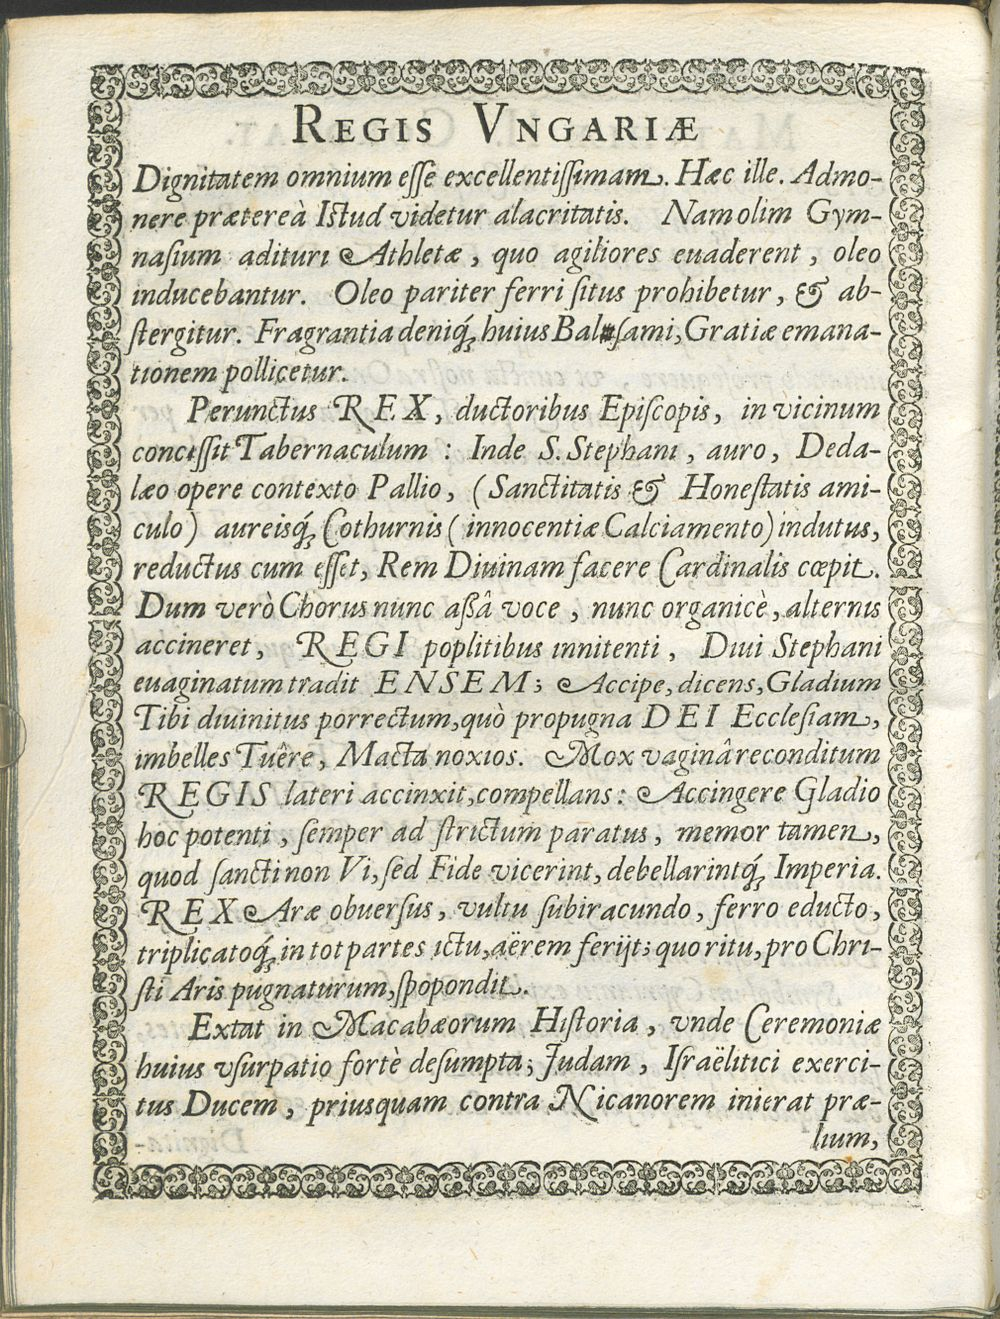 REGIS VNGARIÆ
Dignitatem omnium esse excellentissimam. Hæc ille. Admo-
nere prætereà Istud videtur alacritatis. Nam olim Gym-
nasium adituri Athletæ, quo agiliores euaderent, oleo
inducebantur. Oleo pariter ferri situs prohibetur, & ab-
stergitur. Fragrantia deniq́; huius Balsami, Gratiæ emana-
tionem pollicetur.
Perunctus REX, ductoribus Episcopis, in vicinum
concessit Tabernaculum: Inde S. Stephani, auro, Deda-
læo opere contexto Pallio, (Sanctitatis & Honestatis ami-
culo) aureisq́; Cothurnis (innocentiæ Calciamento) indutus,
reductus cum esset, Rem Diuinam facere Cardinalis cœpit.
Dum verò Chorus nunc aßâ voce, nunc organicè, alternis
accineret, REGI poplitibus innitenti, Diui Stephani
euaginatum tradit ENSEM; Accipe, dicens, Gladium
Tibi diuinitus porrectum, quò propugna DEI Ecclesiam,
imbelles Tuêre, Macta noxios. Mox vaginâ reconditum
REGIS lateri accinxit, compellans: Accingere Gladio
hoc potenti, semper ad strictum paratus, memor tamen,
quod sancti non Vi, sed Fide vicerint, debellarintq́; Imperia.
REX Aræ obuersus, vultu subiracundo, ferro educto,
triplicatoq́; in tot partes ictu, aërem ferijt; quo ritu, pro Chri-
sti Aris pugnaturum, spopondit.
Extat in Macabæorum Historia, vnde Ceremoniæ
huius vsurpatio fortè desumpta; Judam, Israëlitici exerci-
tus Ducem, priusquam contra Nicanorem inierat præ-
lium,